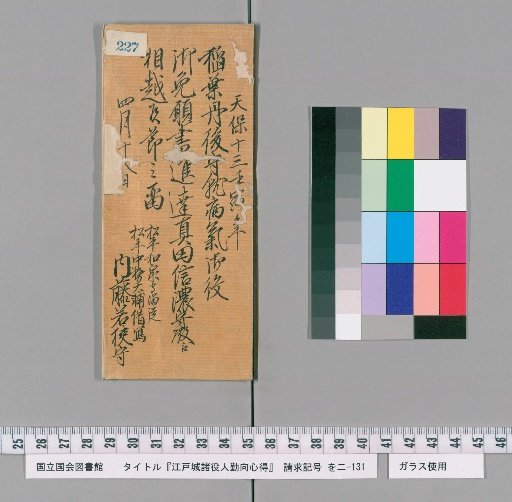 227
天保十三壬寅年
稲葉丹後守就病氣御役
御免願書進達真田信濃守殿
相越候節之留
四月十八日
松平和泉守
内藤若狭守
25 26 27 28 29 30 31 32 33 34 35 36 37 38 39 40 41 42 43 44 45 46
国立国会図書館 タイトル『江戸城諸役人勤向心得』 請求記号 を二-131
ガラス使用